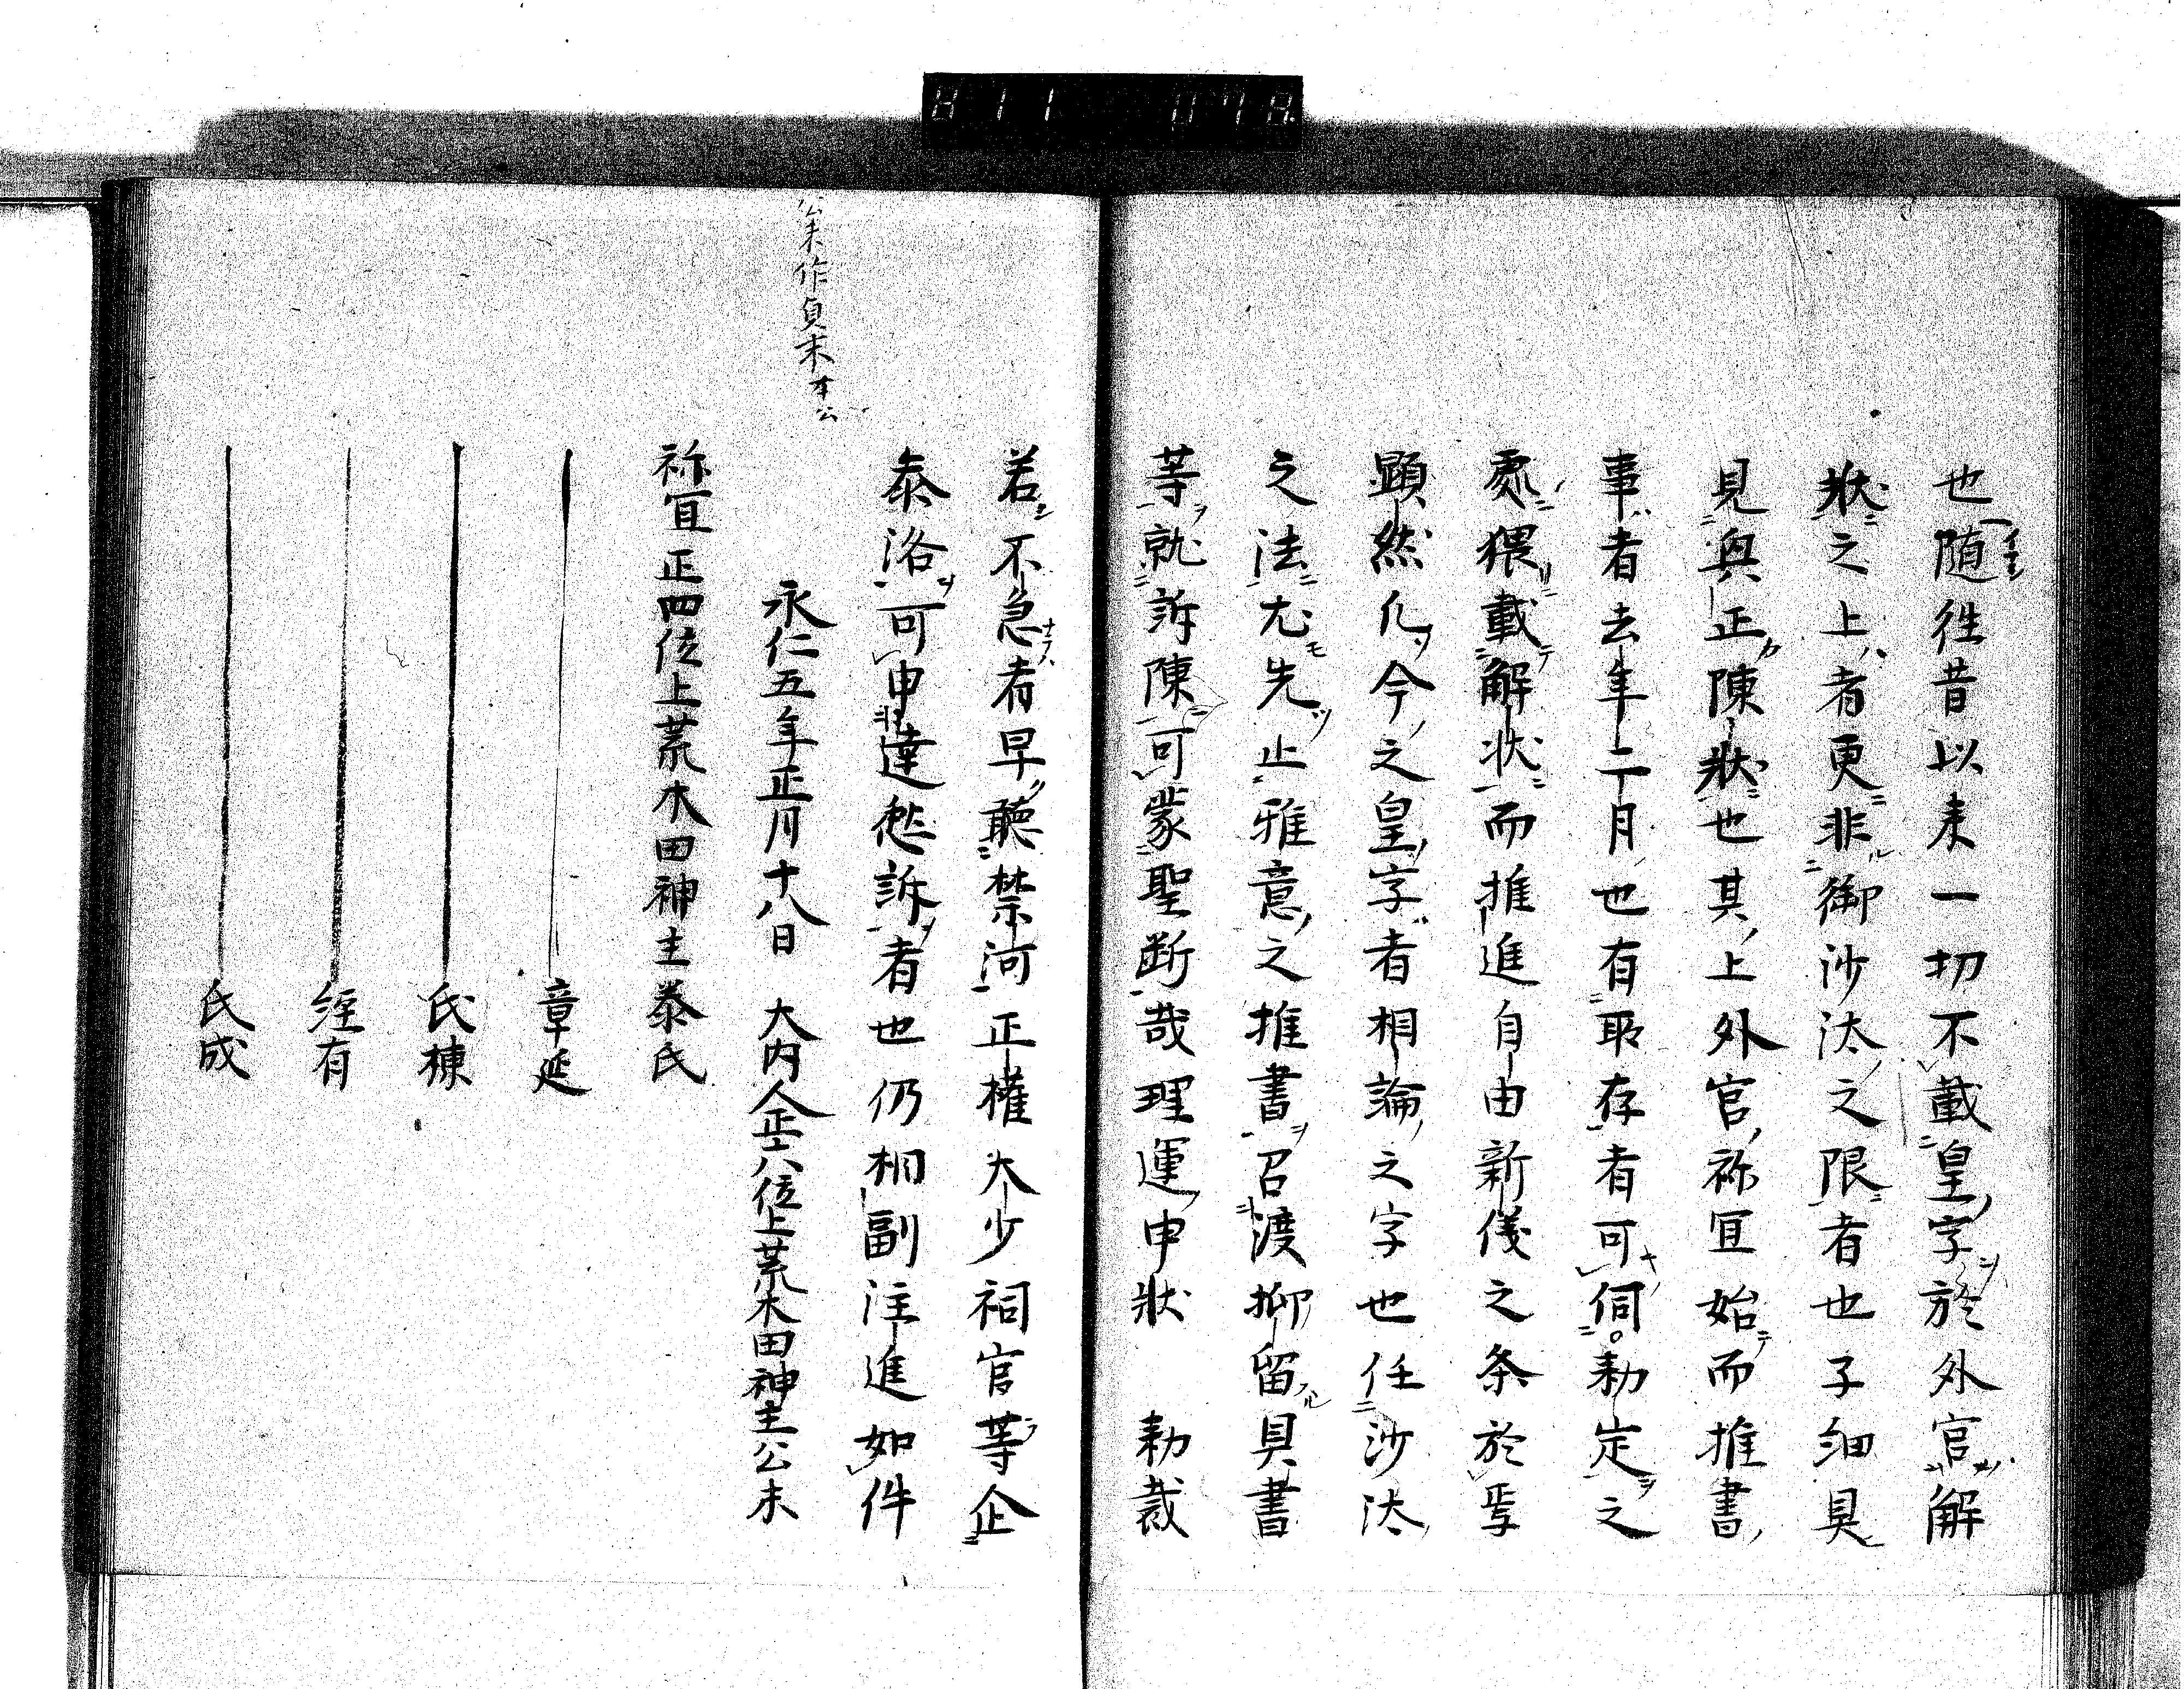 也随往昔以来一切不載皇字於外官解
状之上者更非御沙汰之限者也子細具
見与正陳状也其上外官祢宜始而推書
事者去年二月也有耶存者可伺勅定之
處猥載解状而推進自由新儀之条於焉
顕然凡今之皇字者相論之字也任沙汰
之法尤先止雅意之推書召渡抑留具書
等就訴陳可蒙聖断哉理運申状　勅裁
若不急者早聴禁河正権大少祠官等企
泰洛可申達愁訴者也仍相副注進如件
永仁五年正月十八日　大内人正六位上荒木田神主公末
祢宜正四位上荒木田神主泰氏
章延
氏棟
経有
氏成
作貞末